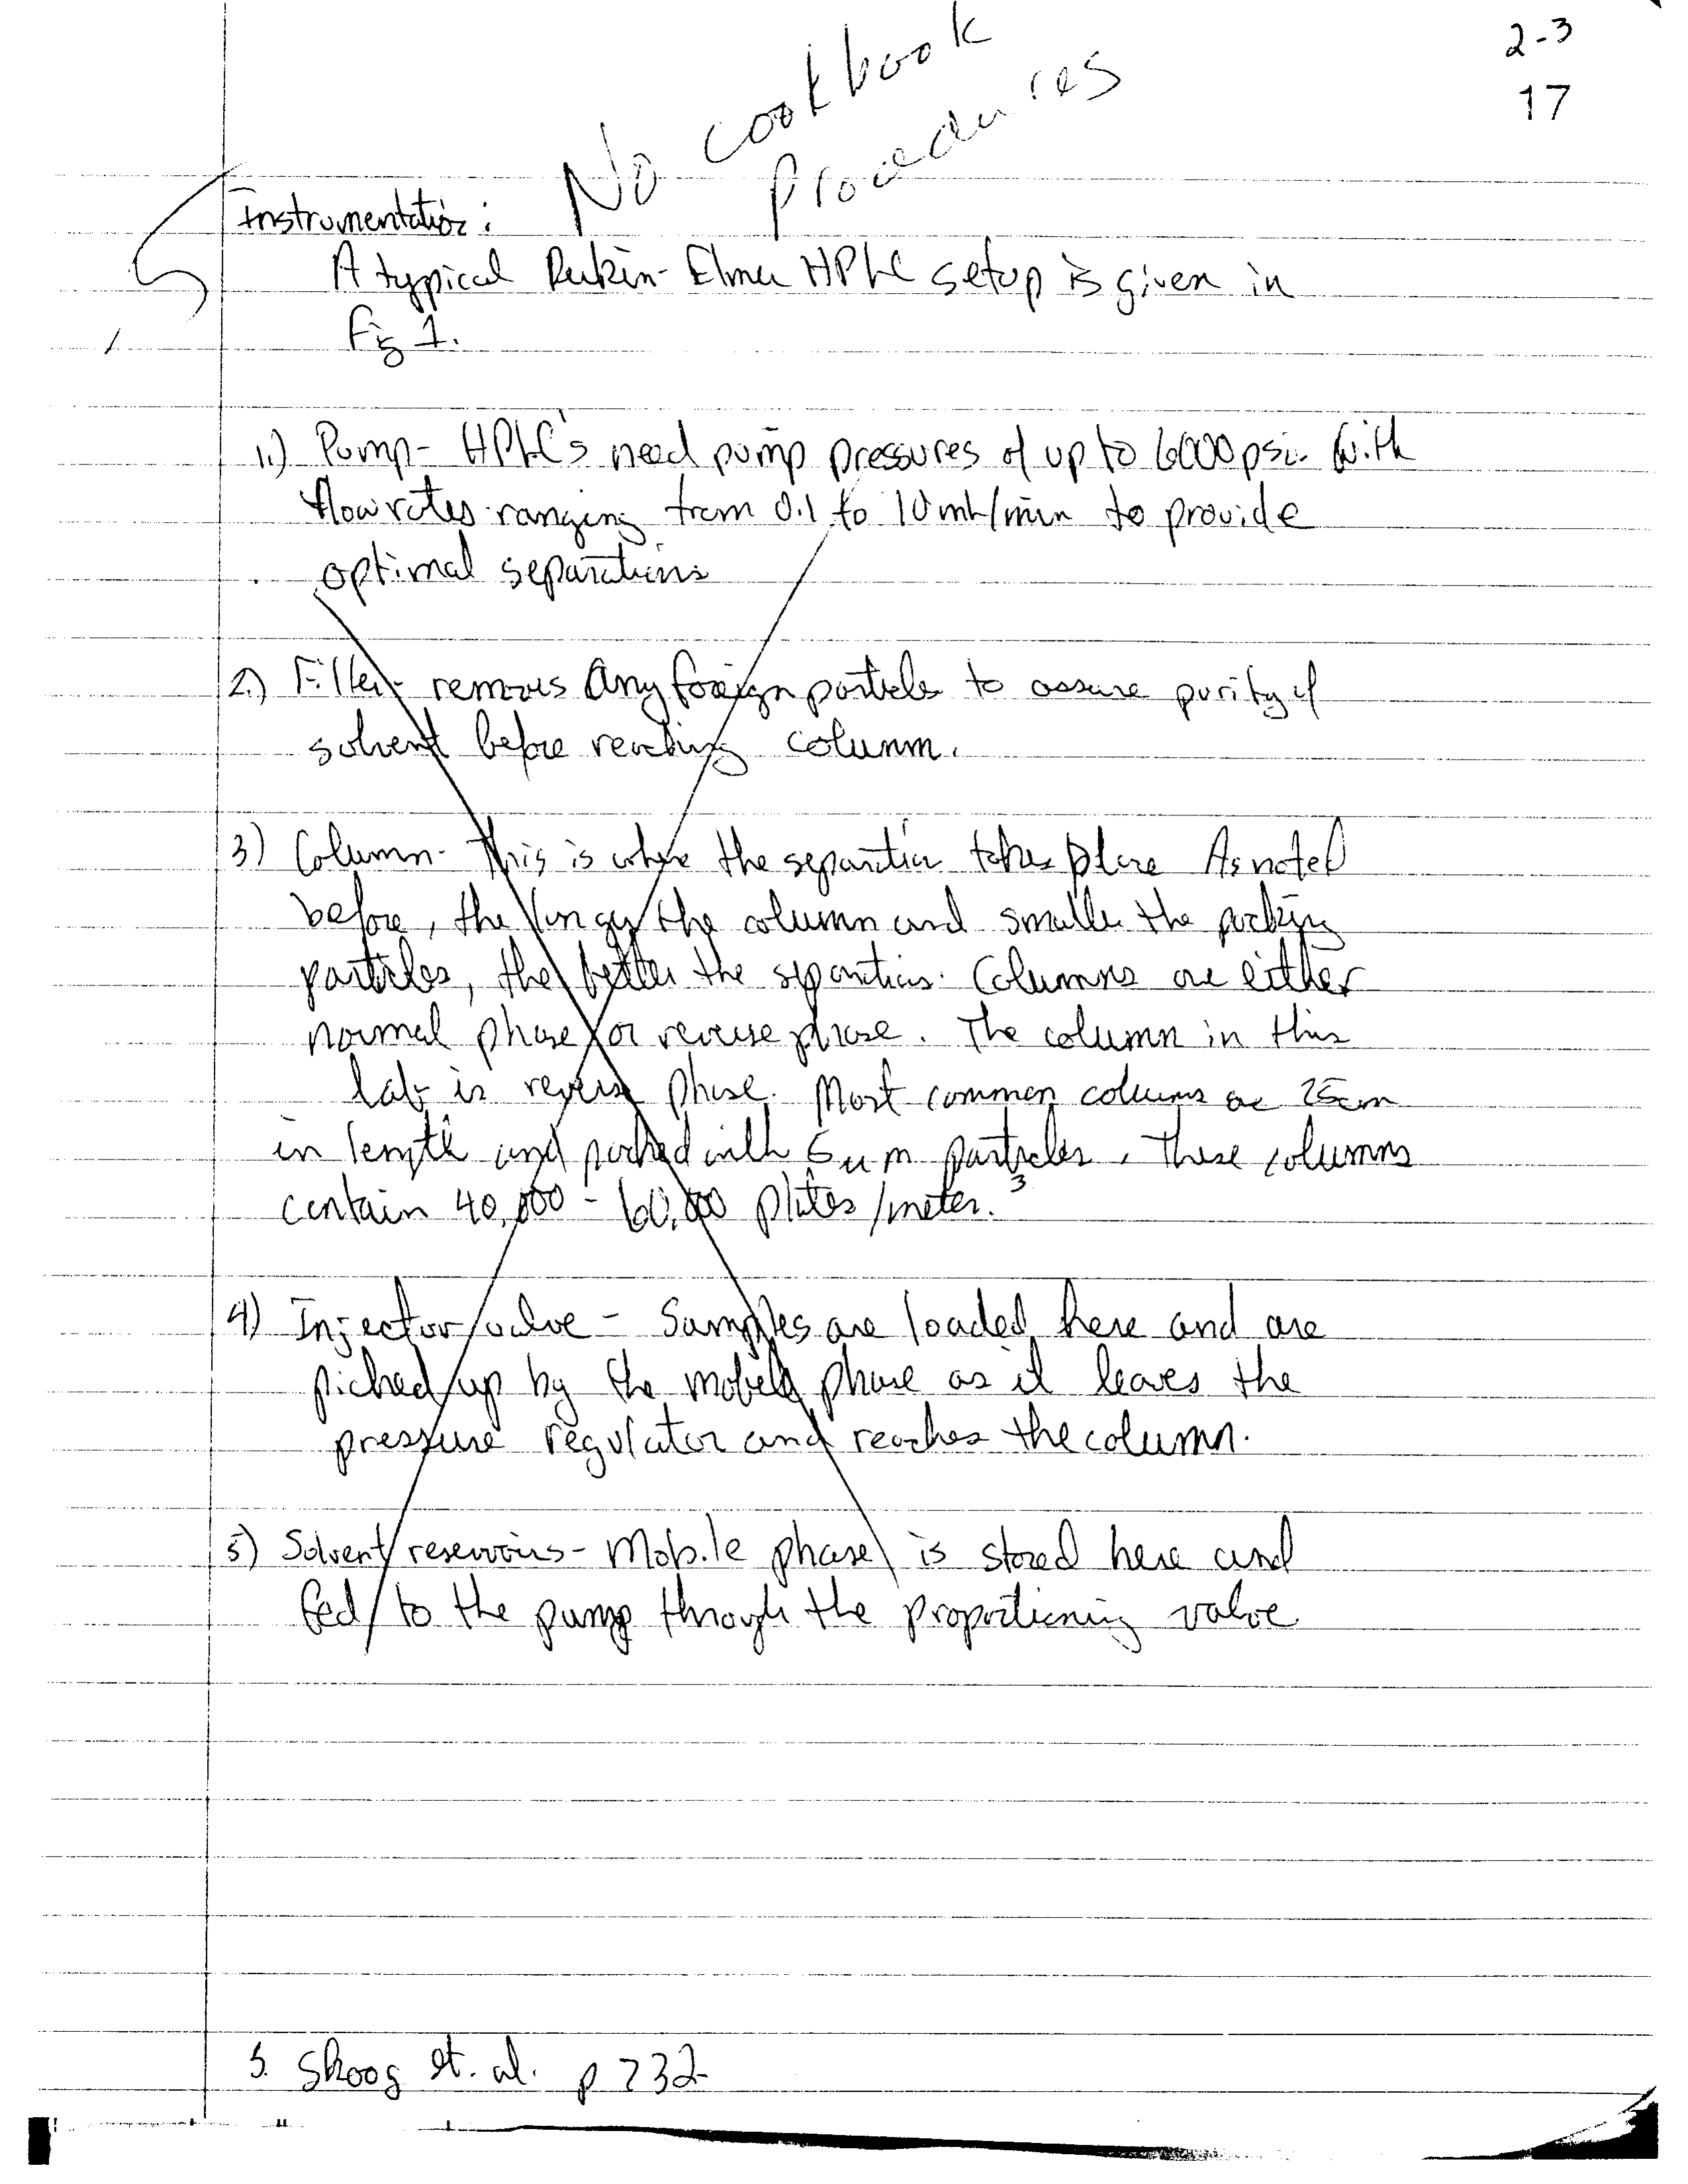 2-3
17
No cookbook
procedures
Instrumentation:
A typical Perkin-Elmer HPLC setup is given in
Fig 1.
1.) Pump- HPLC's need pump pressures of up to 6000 psi. With
flow rates ranging from 0.1 to 10 mL/min to provide
optimal separations
2.) Filter- removes any foreign particles to assure purity of
solvent before reaching column.
3) Column- This is where the separation takes place As noted
before, the longer the column and smaller the packing
particles, the better the separations. Columns are either
normal phase or reverse phase. The column in this
lab is reverse phase. Most common columns are 25cm
in length and packed with 5 um particles. These columns
contain 40,000 - 60,000 plates/meter.3
4) Injector valve - Samples are loaded here and are
picked up by the mobile phase as it leaves the
pressure regulator and reaches the column.
5) Solvent reservoirs - Mobile phase is stored here and
fed to the pump through the proportioning valve
3. Skoog et. al. p 732